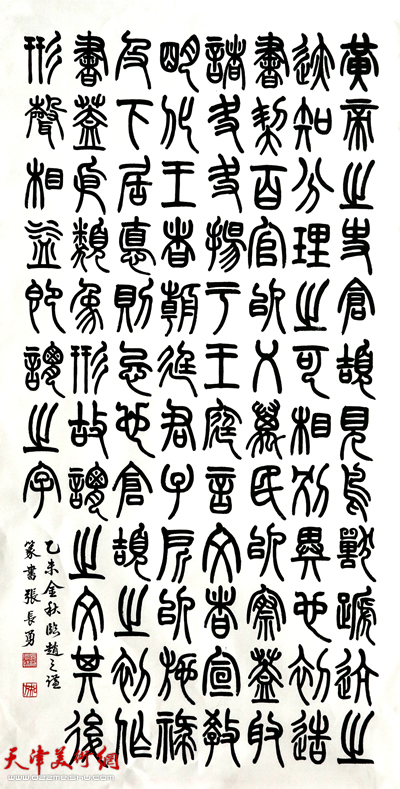 黃帝之史倉頡見鳥獸蹏迒之
迹知分理之可相別異也初造
書契百官以乂萬民以察蓋取
諸夬夬揚于王庭言文者宣教
明化王者朝廷君子所以施祿
及下居悳則忌也倉頡之初作
書蓋依類象形故謂之文其後
形聲相益即謂之字
乙未金秋臨趙之謙
篆書張長勇
天津美術網
www.022meishu.com